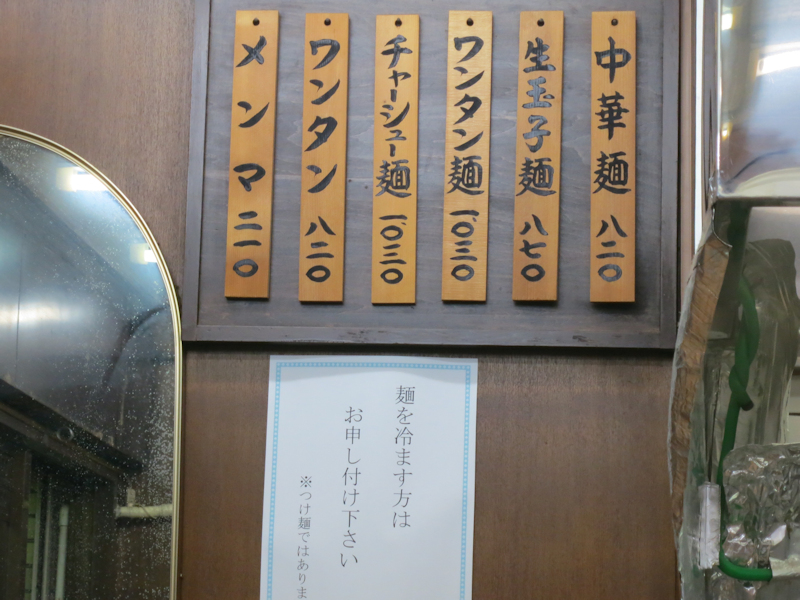 中華麺 八二〇
生玉子麺 八七〇
ワンタン麺 一、〇三〇
チャーシュー麺 一、〇三〇
ワンタン 八二〇
メンマ 二一〇
麺を冷ます方は
お申し付け下さい
※つけ麺ではありま